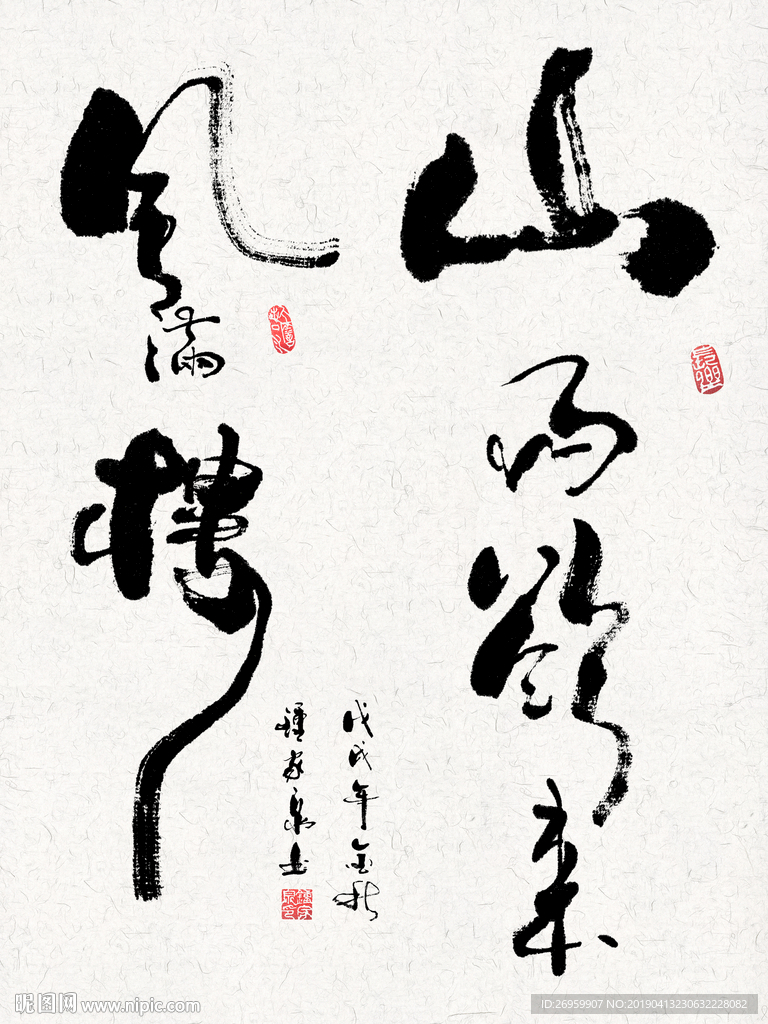 山雨欲来
风满楼
戊戌年金秋
钟家泉书
昵图网 www.nipic.com
ID:26959907 NO:20190413230632228082